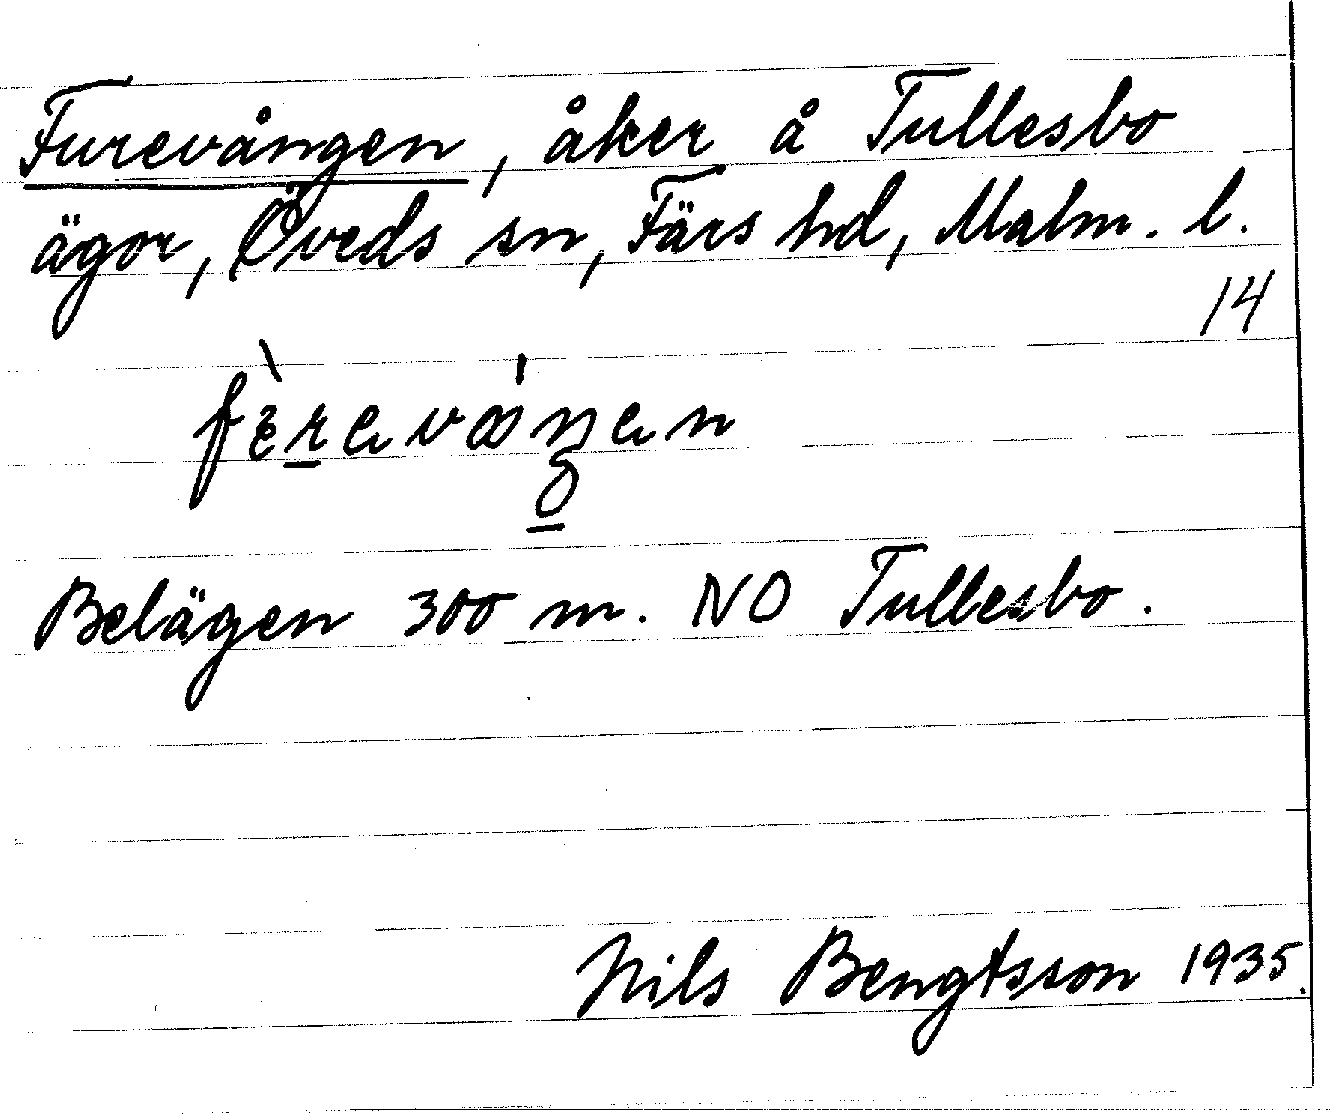 Furevången, åker å Tullesbo
ägor, Öveds sn, Färs hd, Malm. l.
14
Belägen 300 m. NO Tullesbo.
Nils Bengtsson 1935.